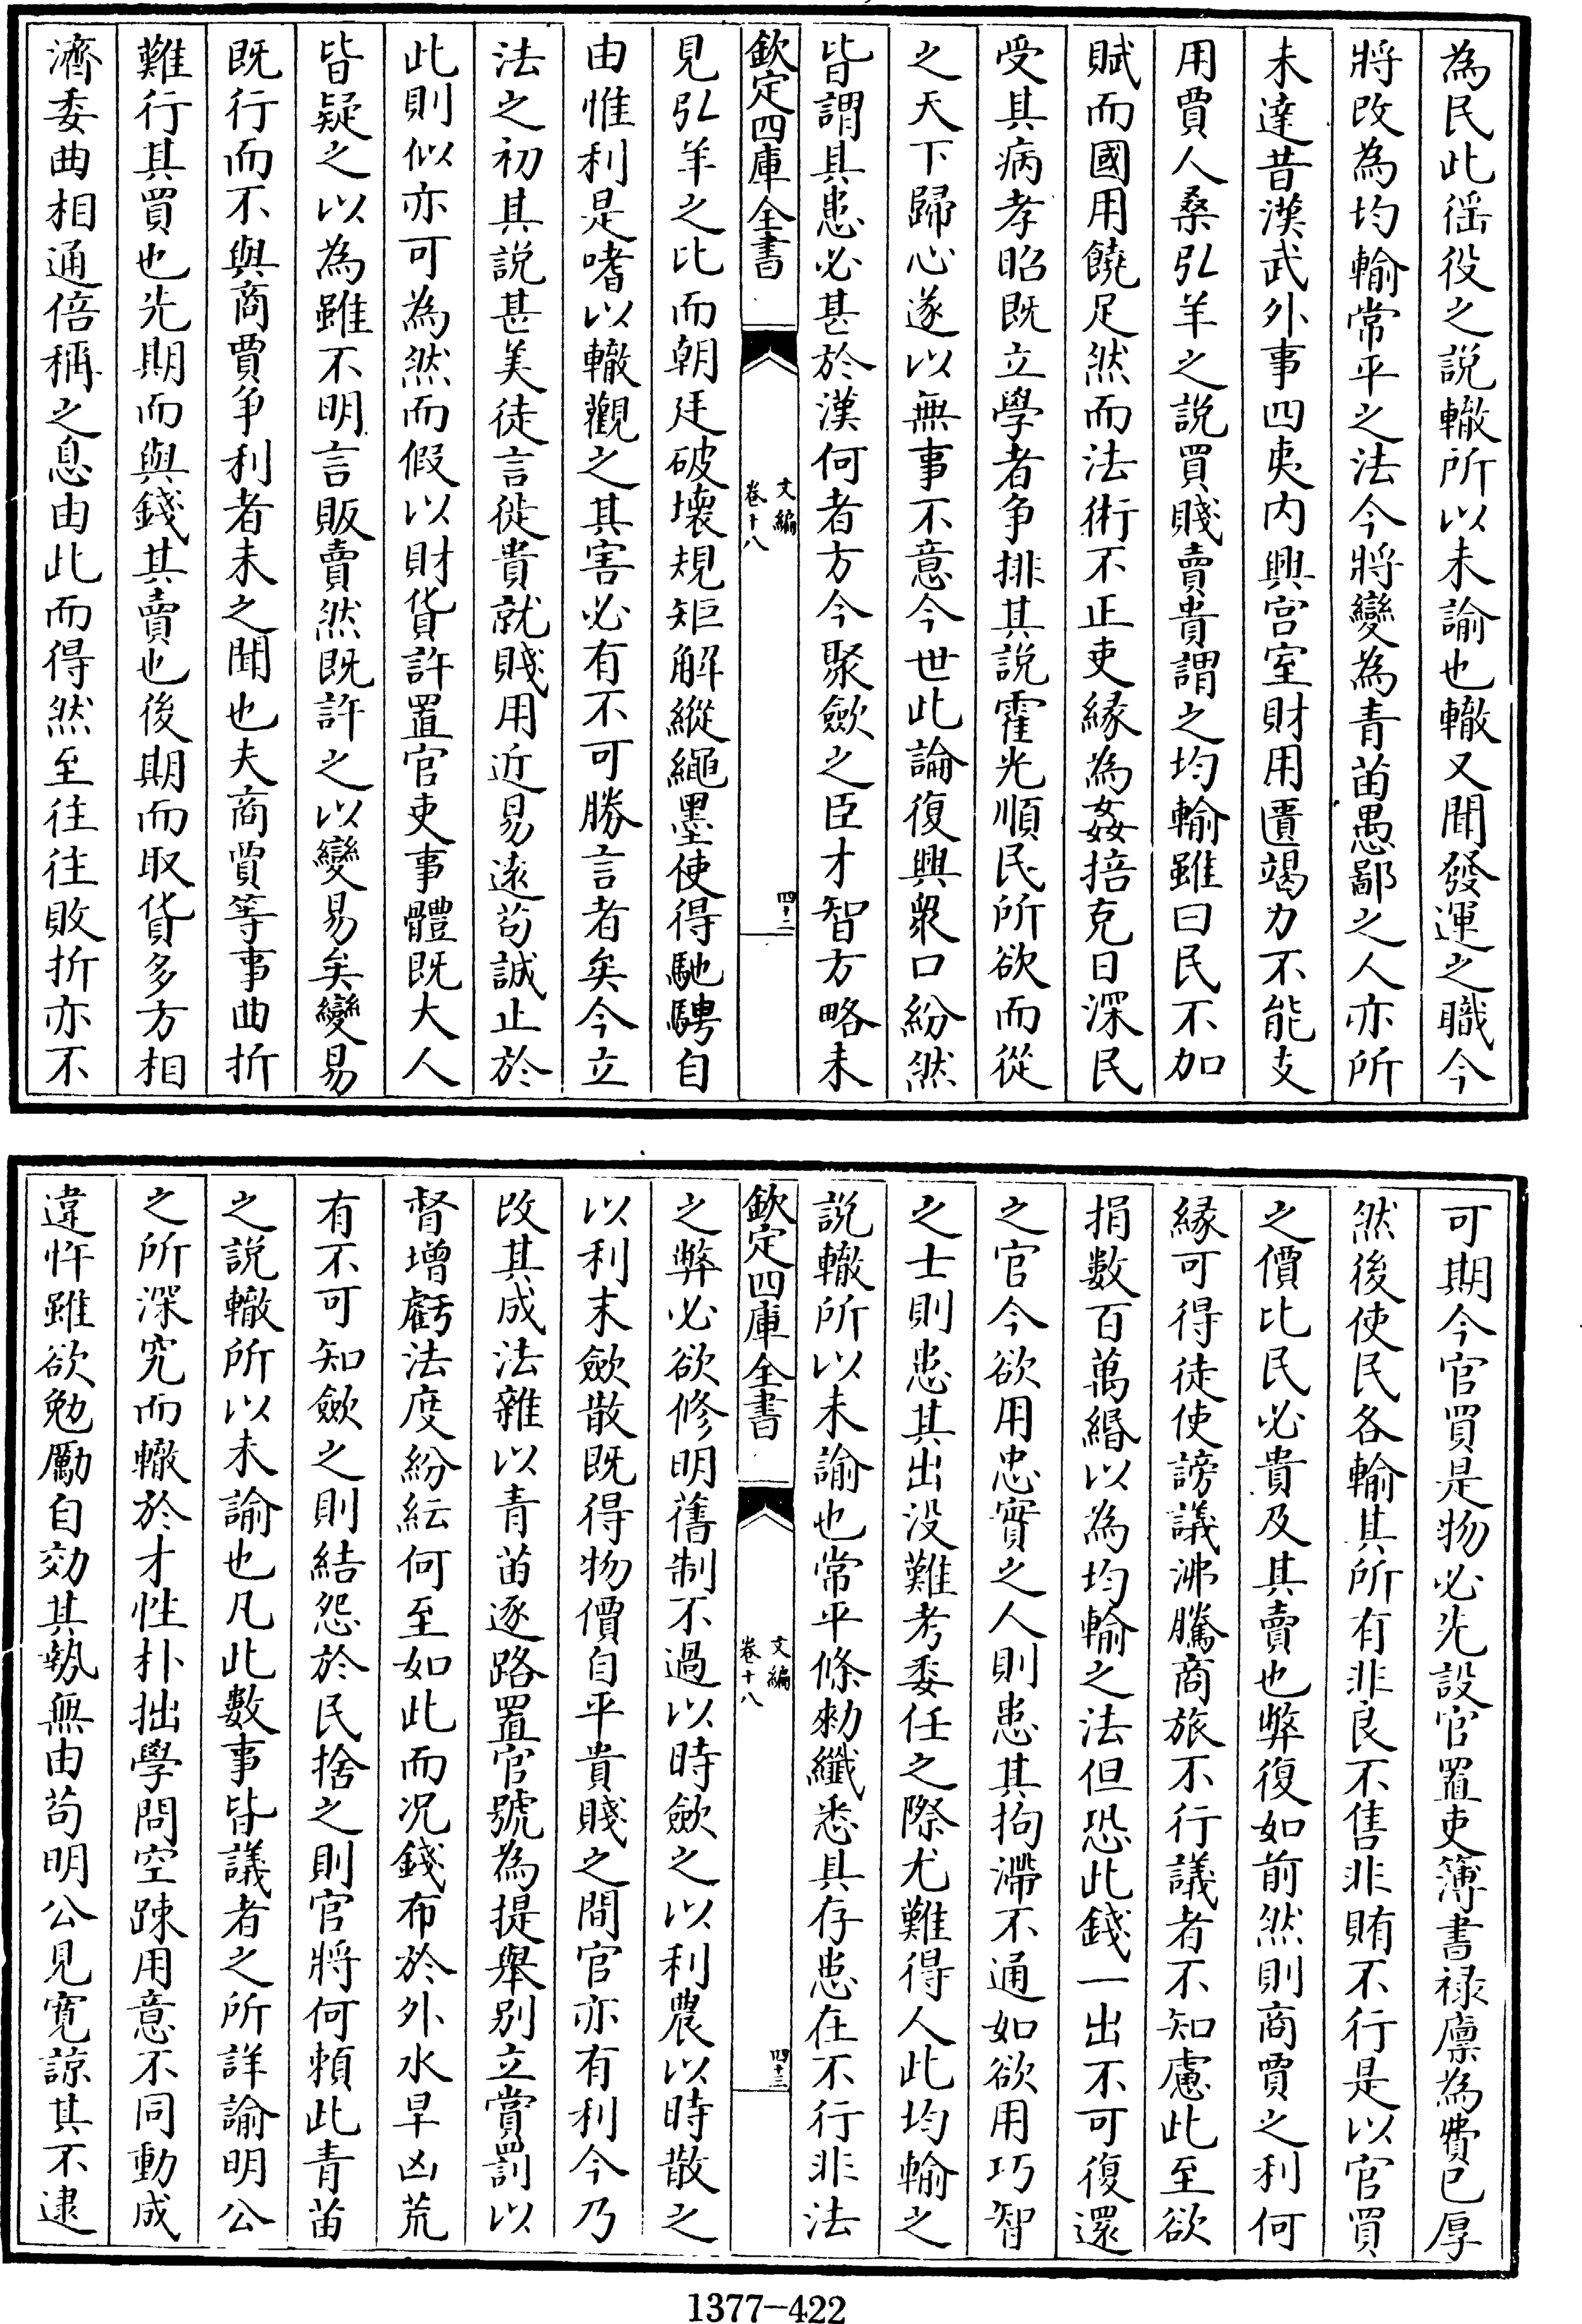 為民此徭役之説轍所以未諭也轍又聞發運之職今
將改為均輸常平之法今將變為青苗愚鄙之人亦所
未達昔漢武外事四夷内興宫室財用匱竭力不能支
用賈人桑弘羊之説買賤賣貴謂之均輸雖曰民不加
賦而國用饒足然而法術不正吏緣為姦掊克日深民
受其病孝昭既立學者争排其説霍光順民所欲而從
之天下歸心遂以無事不意今世此論復興衆口紛然
皆謂其患必甚於漢何者方今聚歛之臣才智方略未
欽定四庫全書
文編
卷十八
四十二
見弘羊之比而朝廷破壞規矩解縱繩墨使得馳騁自
由惟利是嗜以轍觀之其害必有不可勝言者矣今立
法之初其説甚美徒言徙貴就賤用近易遠苟誠止於
此則似亦可為然而假以財貨許置官吏事體既大人
皆疑之以為雖不明言販賣然既許之以變易矣變易
既行而不與商賈争利者未之聞也夫商賈等事曲折
難行其買也先期而與錢其賣也後期而取貨多方相
濟委曲相通倍稱之息由此而得然至往往敗折亦不
可期今官買是物必先設官置吏簿書禄廪為費已厚
然後使民各輸其所有非良不售非賄不行是以官買
之價比民必貴及其賣也弊復如前然則商賈之利何
緣可得徒使謗議沸騰商旅不行議者不知慮此至欲
捐數百萬緡以為均輸之法但恐此錢一出不可復還
之官今欲用忠實之人則患其拘滯不通如欲用巧智
之士則患其出没難考委任之際尤難得人此均輸之
説轍所以未諭也常平條勑纖悉具存患在不行非法
欽定四庫全書
文編
卷十八
四十三
之弊必欲修明舊制不過以時歛之以利農以時散之
以利末歛散既得物價自平貴賤之間官亦有利今乃
改其成法雜以青苗逐路置官號為提舉别立賞罰以
督增虧法度紛紜何至如此而况錢布於外水旱凶荒
有不可知歛之則結怨於民捨之則官將何賴此青苗
之説轍所以未諭也凡此數事皆議者之所詳諭明公
之所深究而轍於才性朴拙學問空踈用意不同動成
違忤雖欲勉勵自効其埶無由苟明公見寛諒其不逮
1377-422